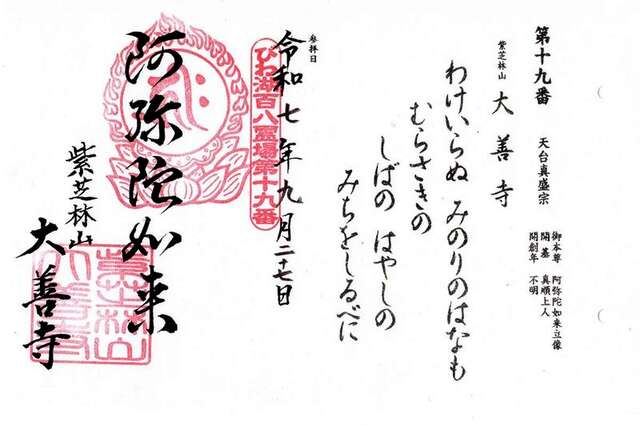 第十九番
天台真盛宗
御本尊 阿弥陀如来立像
開基 真順上人
開創年 不明
紫芝林山 大善寺
わけいらぬ みのりのはなも
むらさきの
しばの はやしの
みちをしるべに
参拝日
令和七年九月二十七日
びわ湖百八霊場第十九番
阿弥陀如来
紫芝林山
大善寺